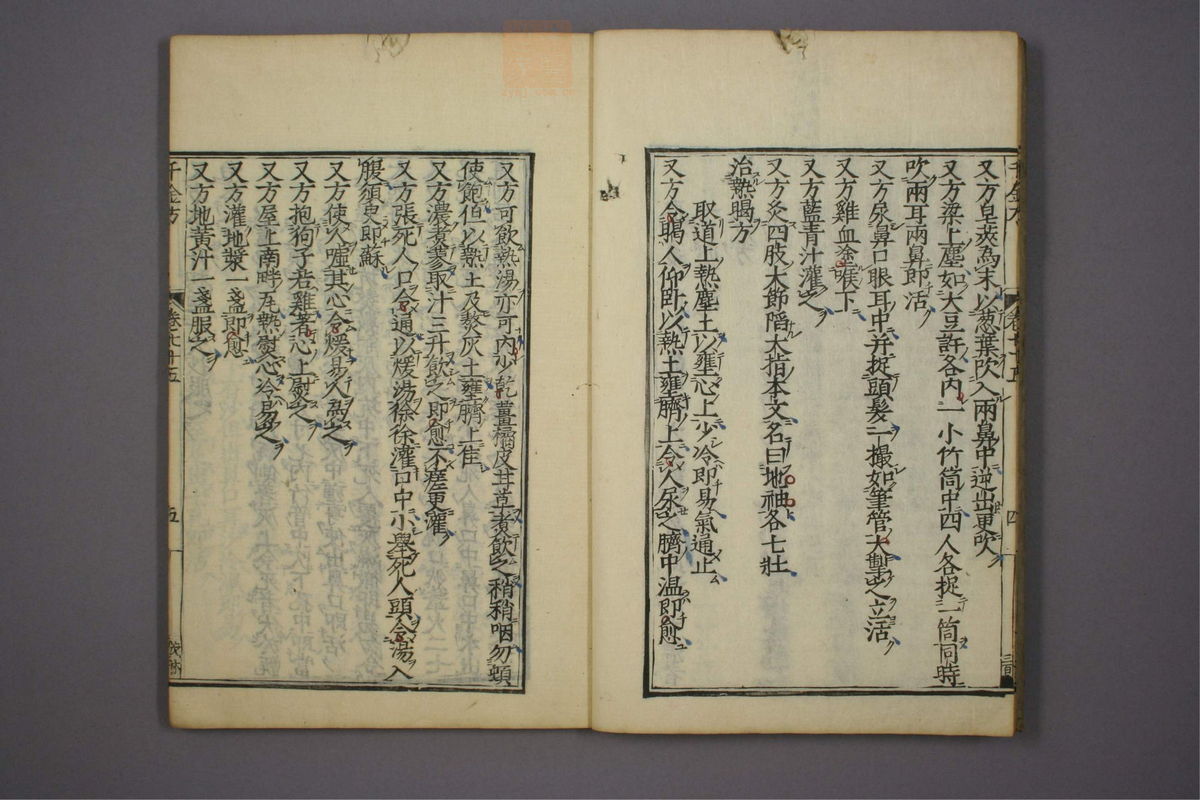 又方皂莢為末以葱葉吹入兩鼻中逆出更吹
又方梁上塵如大豆許各內一小竹筒中四人各捉一筒同時
吹兩耳兩鼻即活
又方尿鼻口眼耳中并捉頭髮一撮如筆管大掣之立活
又方雞血塗喉下
又方藍青汁灌之
又方灸四肢大節陷大指本文名曰地袖各七壯
治熱暍方
取道上熱塵土以壅心上少冷即易氣通止
又方令暍人仰卧以熱土壅臍上令人尿之臍中溫即愈
千金方
卷七十五
四
又方可飲熱湯亦可內少乾薑橘皮甘草煮飲之稍稍咽勿頓
使飽伯以熱土及熬灰土壅臍上佳
又方濃煮蓼取汁三升飲之即愈不瘥更灌
又方張死人口令通以煖湯徐徐灌口中小舉死人頭令湯入
腹須臾即蘇
又方使人噓其心令煖易人為之
又方抱狗子若雞著心上熨之
又方屋上南畔瓦熱熨心冷易之
又方灌地漿一盞即愈
又方地黃汁一盞服之
千金方
卷七十五
五